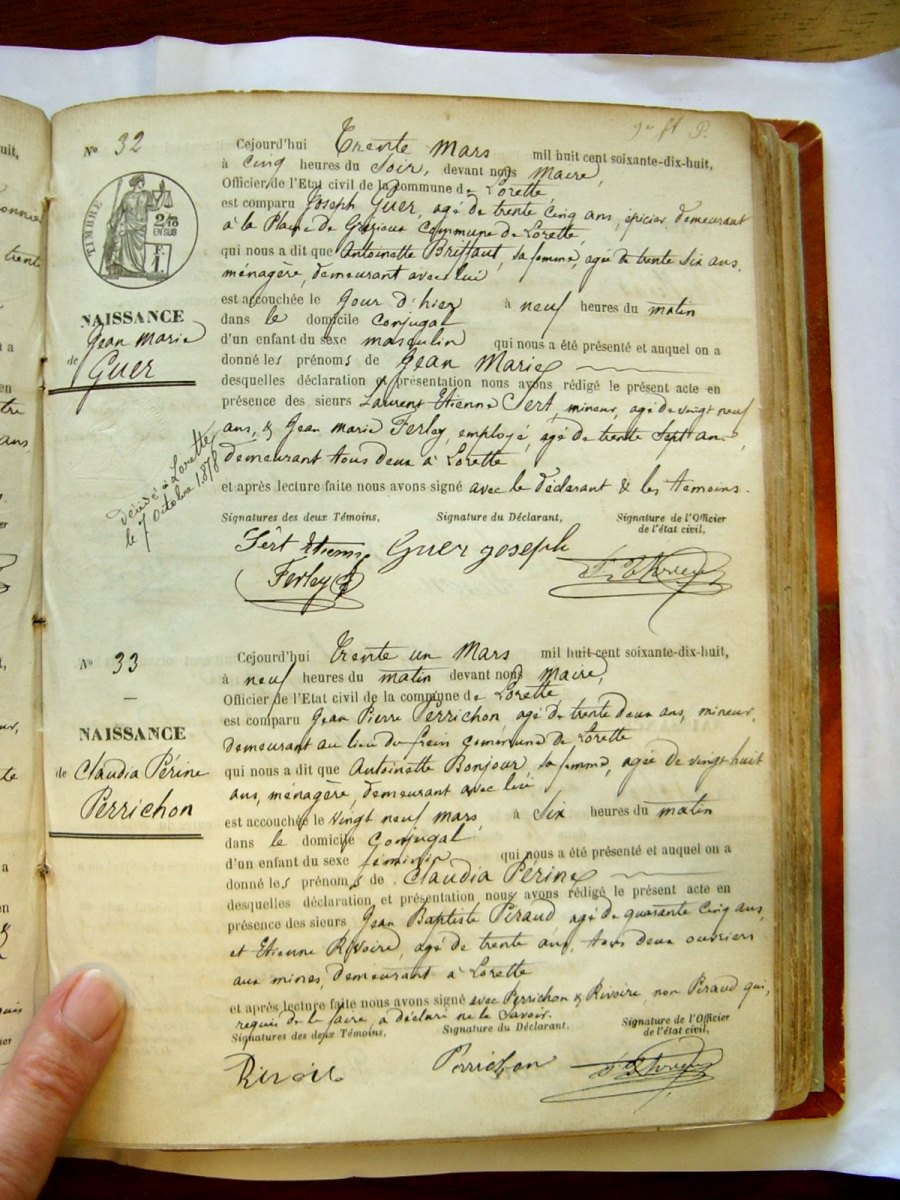 uit,
trente
en
ans,
9m ft P.
N° 32
TIMBRE
2/10
EN SUS
NAISSANCE
de Jean Marie
Guer
décédé à Lorette
le 7 Octobre 1878
Cejourd'hui Trente Mars mil huit cent soixante-dix-huit,
à Cinq heures du Soir, devant nous Maire,
Officier de l'Etat civil de la commune de Lorette
est comparu Joseph Guer, agé de trente Cinq ans, épicier demeurant
à la Plaine de Grézieux Commune de Lorette
qui nous a dit que Antoinette Briffaut, sa femme, agée de trente Six ans,
ménagère, demeurant avec lui
est accouchée le Jour d'hier à neuf heures du matin
dans le domicile Conjugal
d'un enfant du sexe masculin qui nous a été présenté et auquel on a
donné les prénoms de Jean Marie
desquelles déclaration et présentation nous avons rédigé le présent acte en
présence des sieurs Laurent Etienne Sert, mineur, agé de vingt neuf
ans, & Jean Marie Ferley, employé, agé de trente Sept ans
demeurant tous deux à Lorette
et après lecture faite nous avons signé avec le déclarant & les témoins.
Signatures des deux Témoins, Signature du Déclarant, Signature de l'Officier
de l'état civil,
Sert Etienne Guer joseph
Ferley
N° 33
NAISSANCE
de Claudia Périne
Perrichon
Cejourd'hui Trente un Mars mil huit-cent soixante-dix-huit,
à neuf heures du matin devant nous Maire,
Officier de l'Etat civil de la commune de Lorette
est comparu Jean Pierre Perrichon agé de trente deux ans, mineur,
demeurant au lieu du frein Commune de Lorette
qui nous a dit que Antoinette Bonjour sa femme, agée de vingt huit
ans, ménagère, demeurant avec lui
est accouchée le vingt neuf mars, à Six heures du matin
dans le domicile Conjugal
d'un enfant du sexe féminin qui nous a été présenté et auquel on a
donné les prénoms de Claudia Périne
desquelles déclaration et présentation nous avons rédigé le présent acte en
présence des sieurs Jean Baptiste Péraud agé de quarante Cinq ans,
et Etienne Rivoire, agé de trente ans, tous deux ouvriers
aux mines, demeurant à Lorette
et après lecture faite nous avons signé avec Perrichon & Rivoire non Péraud qui,
requis de le faire a déclaré ne le Savoir.
Signatures des deux Témoins, Signature du Déclarant, Signature de l'Officier
de l'état civil,
Rivoire Perrichon